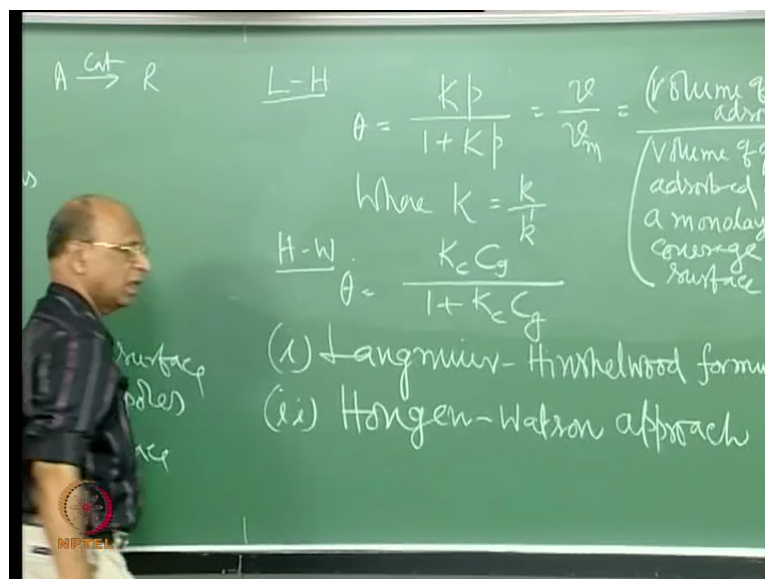 A Cat→ R
L-H
θ = Kp / 1 + Kp = v / v_m = (Volume of
adso
(Volume of g
adsorbed
a monolay
coverage
surface
Where K = k / k'
H-W
θ = K_c C_g / 1 + K_c C_g
(i) Langmuier-Hinshelwood formu
(ii) Hougen-Watson approach
surface
poles
ace
NPTEL